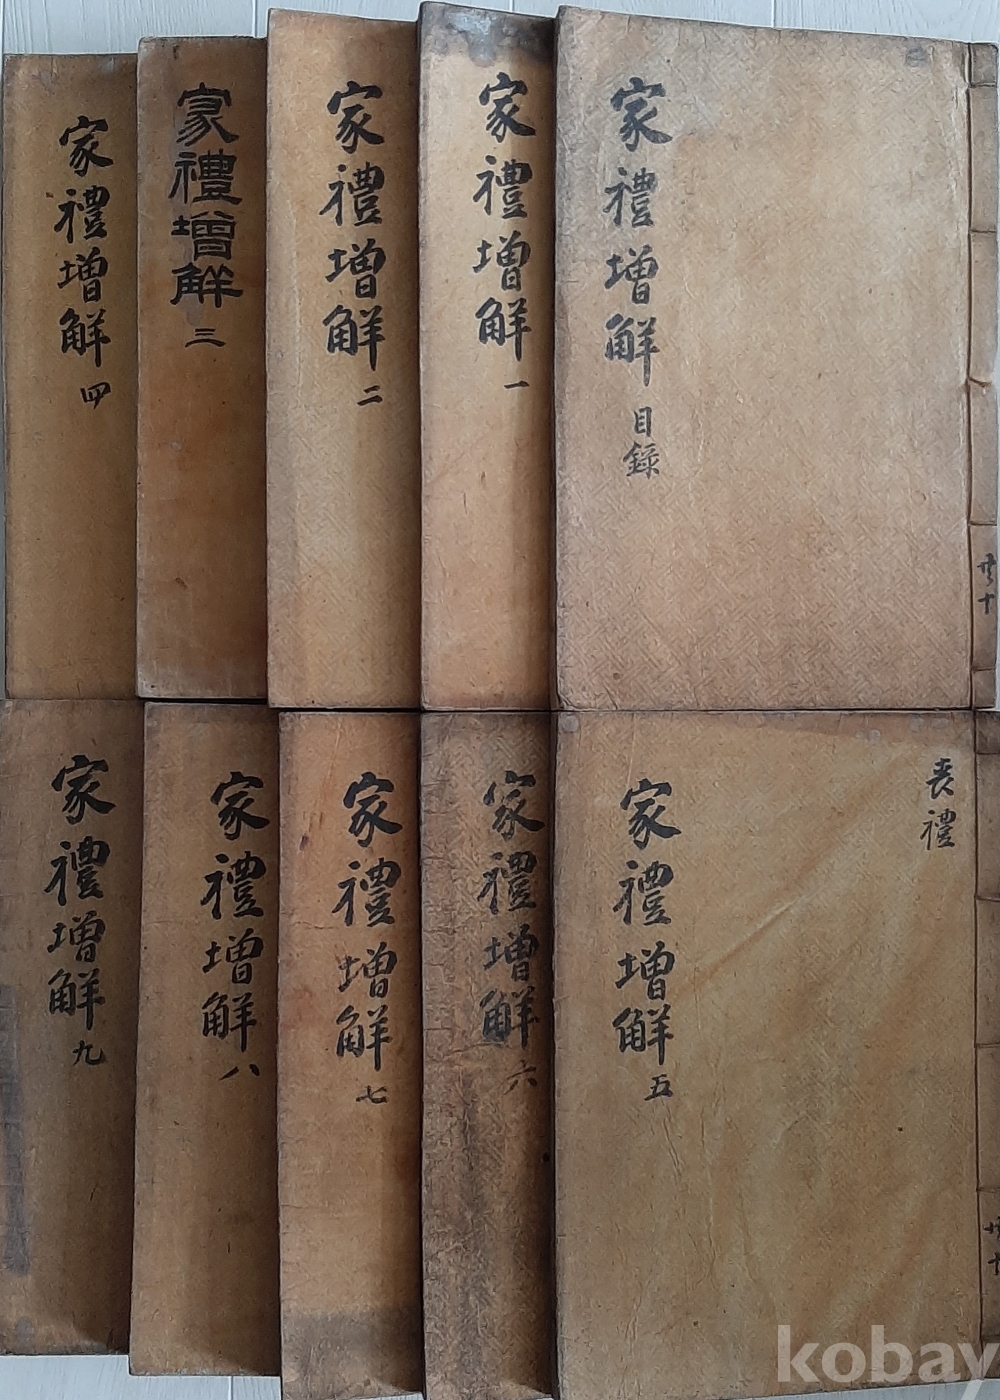 家禮增解 目錄
家禮增解 一
家禮增解 二
家禮增解 三
家禮增解 四
喪禮
家禮增解 五
家禮增解 六
家禮增解 七
家禮增解 八
家禮增解 九
kobay